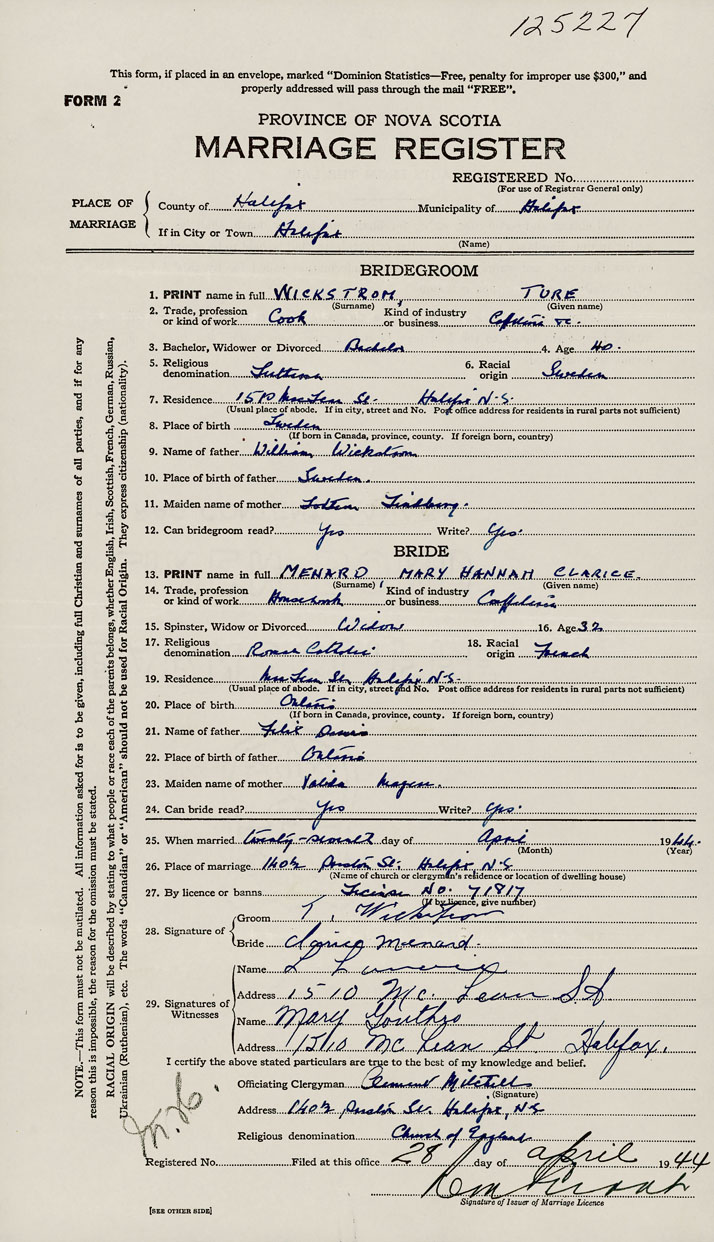 125227
This form, if placed in an envelope, marked "Dominion Statistics—Free, penalty for improper use $300," and
properly addressed will pass through the mail "FREE".
FORM 2
PROVINCE OF NOVA SCOTIA
MARRIAGE REGISTER
REGISTERED No.
(For use of Registrar General only)
PLACE OF MARRIAGE
County of Halifax Municipality of Halifax
If in City or Town Halifax
(Name)
BRIDEGROOM
1. PRINT name in full WICKSTROM, TURE
(Surname) (Given name)
2. Trade, profession or kind of work Cook Kind of industry or business
3. Bachelor, Widower or Divorced Bachelor 4. Age 40.
5. Religious denomination Lutheran 6. Racial origin Sweden
7. Residence 1510 MacLean St. Halifax N.S.
(Usual place of abode. If in city, street and No. Post office address for residents in rural parts not sufficient)
8. Place of birth Sweden
(If born in Canada, province, county. If foreign born, country)
9. Name of father William Wickstrom
10. Place of birth of father Sweden.
11. Maiden name of mother Lindberg.
12. Can bridegroom read? Yes Write? Yes.
BRIDE
13. PRINT name in full MENARD MARY HANNAH CLARICE.
(Surname) (Given name)
14. Trade, profession or kind of work Housework Kind of industry or business
15. Spinster, Widow or Divorced Widow 16. Age 32
17. Religious denomination Roman Catholic 18. Racial origin French
19. Residence MacLean St. Halifax N.S.
(Usual place of abode. If in city, street and No. Post office address for residents in rural parts not sufficient)
20. Place of birth Ontario
(If born in Canada, province, county. If foreign born, country)
21. Name of father Felix
22. Place of birth of father Ontario
23. Maiden name of mother Valida
24. Can bride read? Yes Write? Yes.
25. When married twenty-seventh day of April 1944.
(Month) (Year)
26. Place of marriage 140½ Preston St. Halifax, N.S
(Name of church or clergyman's residence or location of dwelling house)
27. By licence or banns License No. 71817
(If by licence, give number)
28. Signature of
Groom T. Wickstrom
Bride Clarice Menard.
29. Signatures of Witnesses
Name L
Address 1510 Mc Lean St
Name Mary Gouthro
Address 1510 Mc Lean St. Halifax.
I certify the above stated particulars are true to the best of my knowledge and belief.
Officiating Clergyman Clement Mitchell
(Signature)
Address 140½ Preston St. Halifax, N.S
Religious denomination Church of England
Registered No. Filed at this office 28 day of april 1944
Signature of Issuer of Marriage Licence
[SEE OTHER SIDE]
NOTE.—This form must not be mutilated. All information asked for is to be given, including full Christian and surnames of all parties, and if for any
reason this is impossible, the reason for the omission must be stated.
RACIAL ORIGIN will be described by stating to what people or race each of the parents belongs, whether English, Irish, Scottish, French, German, Russian,
Ukrainian (Ruthenian), etc. The words "Canadian" or "American" should not be used for Racial Origin. They express citizenship (nationality).